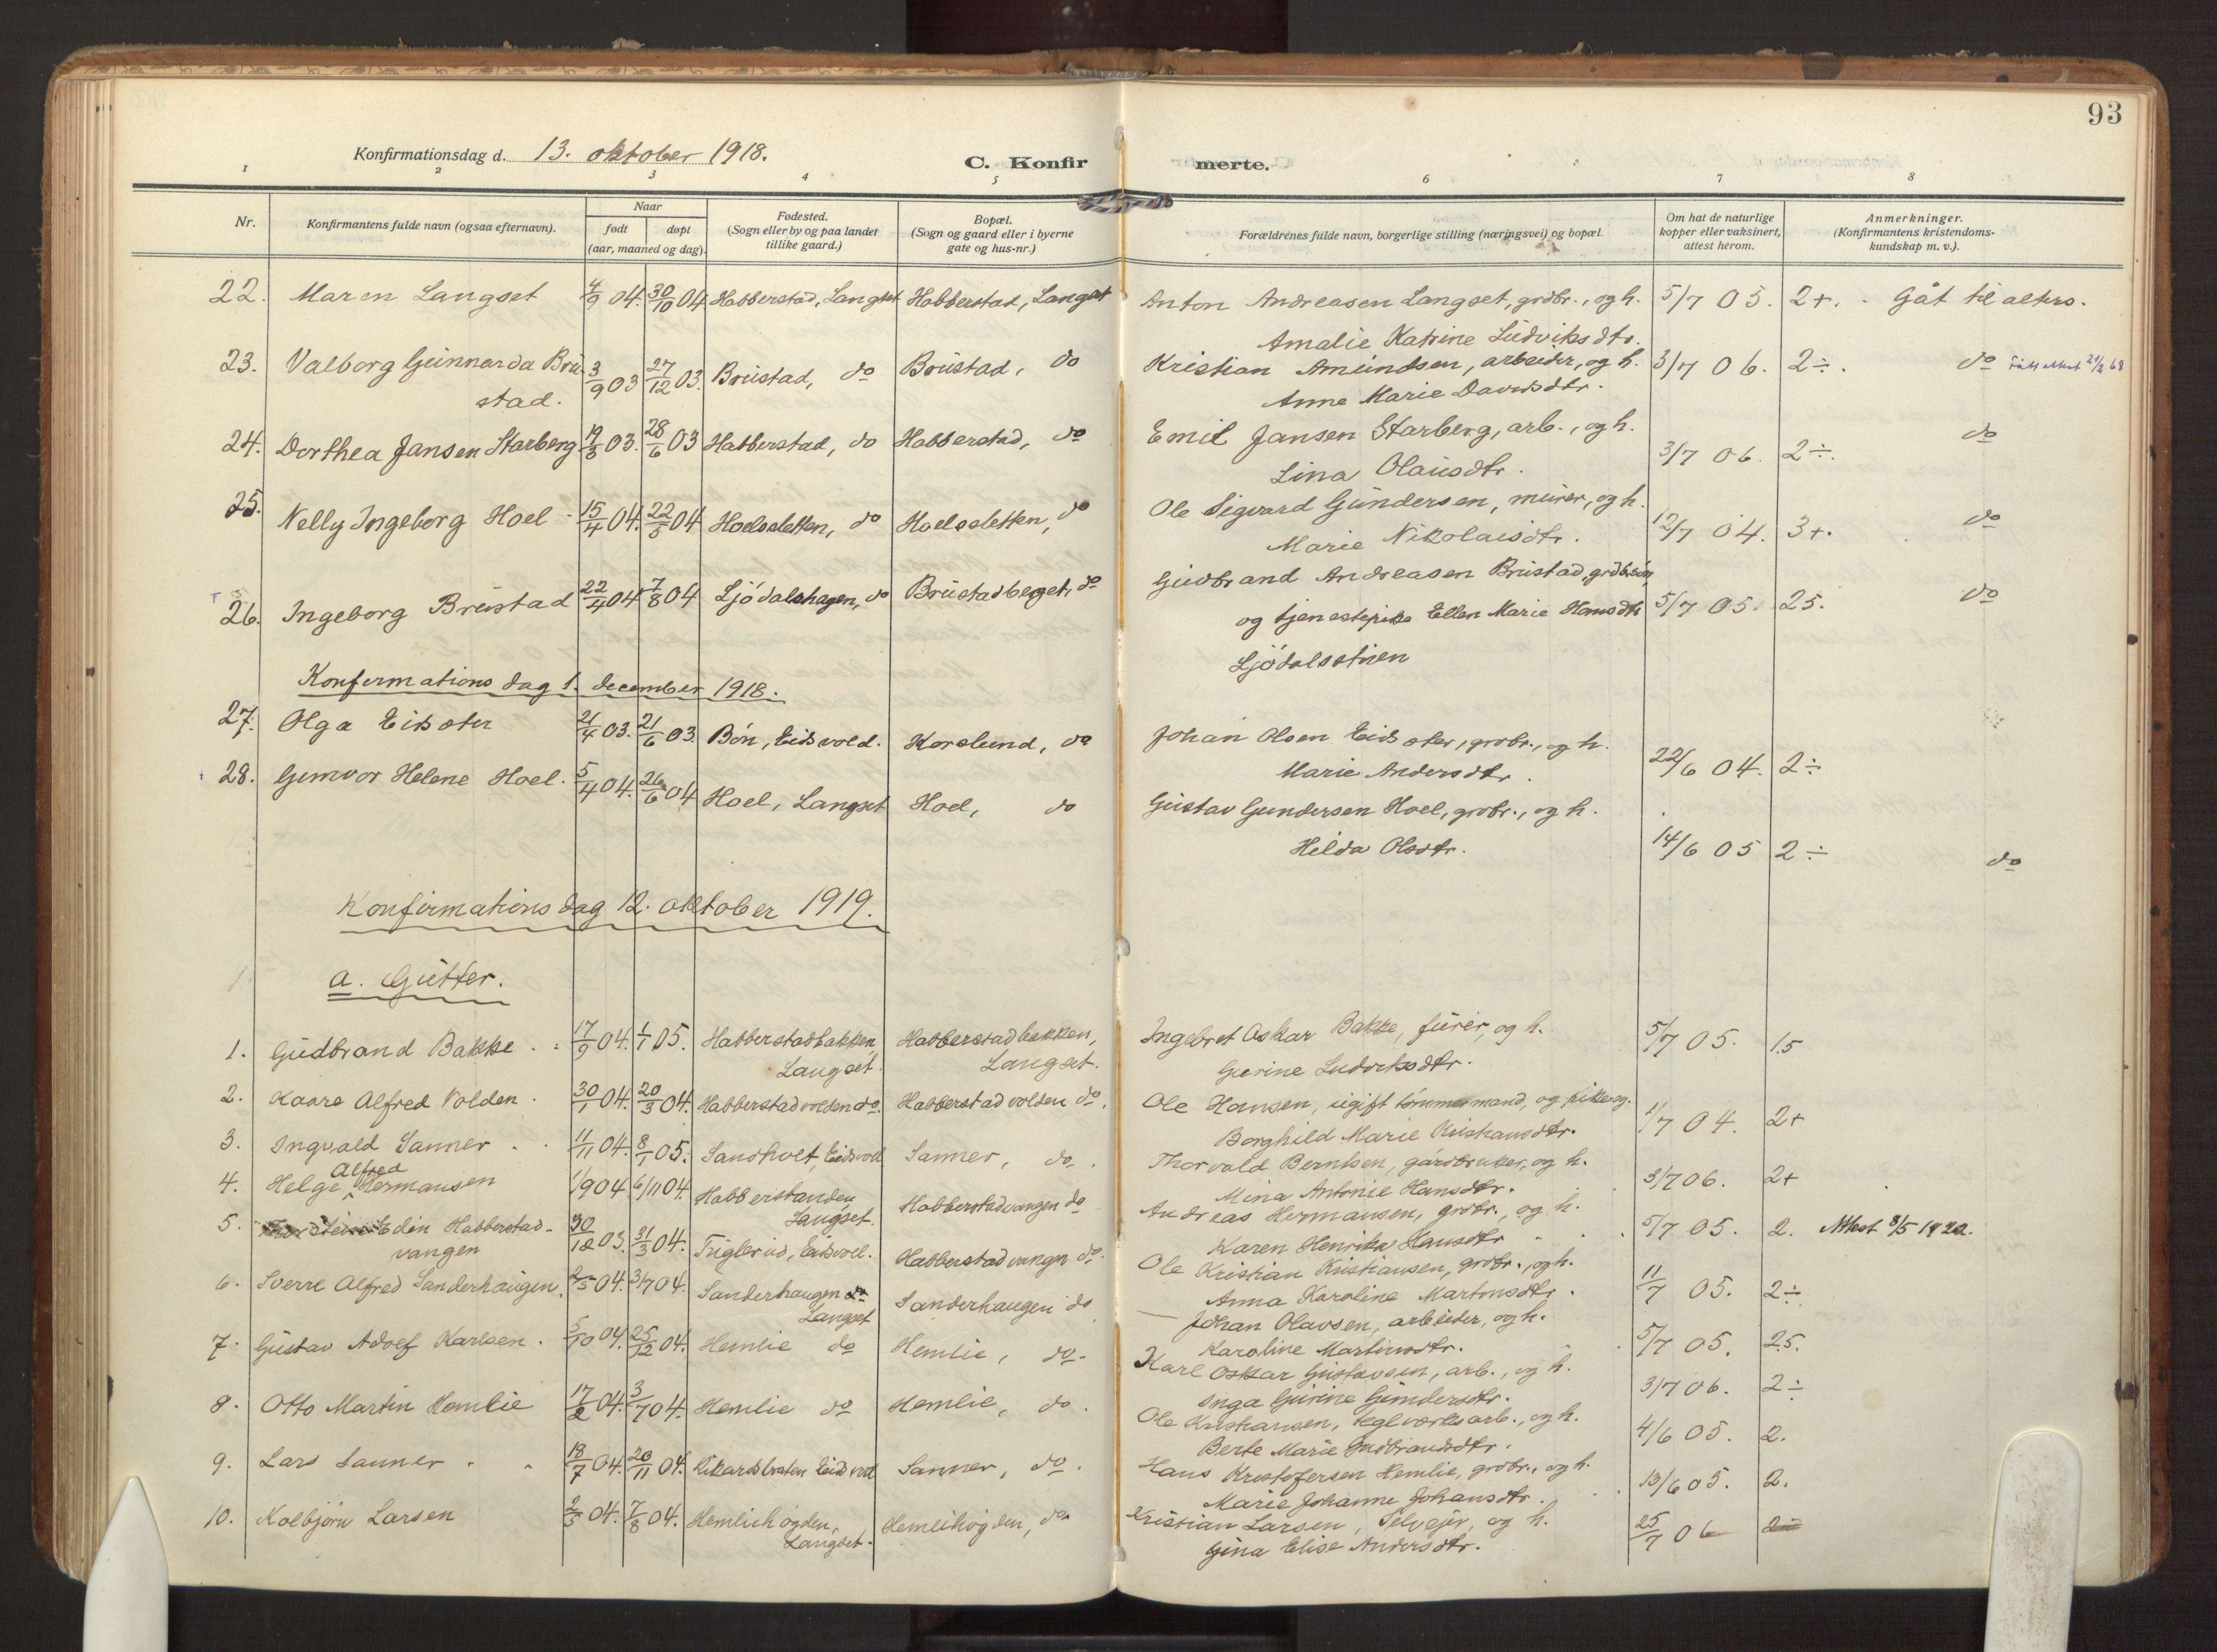 93
Konfirmationsdag d. 13. oktober 1918.
C. Konfir merte.
1 2 3 4 5 6 7 8
Nr.
Konfirmantens fulde navn (ogsaa efternavn).
Naar
født
døpt
(aar, maaned og dag).
Fødested.
(Sogn eller by og paa landet
tillike gaard.)
Bopæl.
(Sogn og gaard eller i byerne
gate og hus-nr.)
Forældrenes fulde navn, borgerlige stilling (næringsvei) og bopæl.
Om hat de naturlige
kopper eller vaksinert,
attest herom.
Anmerkninger.
(Konfirmantens kristendoms-
kundskap m. v.).
22. Maren Langset 4/9 04. 30/10 04 Habberstad, Langset Habberstad, Langset Anton Andreasen Langset, grdbr., og h. 5/7 05. 2+. Gåt til alters.
Amalie Katrine Ludviksdtr.
23. Valborg Gunnarda Bru- 3/9 03 27/12 03. Brustad, do Brustad, do Kristian Amundsen, arbeider, og h. 3/7 06. 2÷. do
stad. Anne Marie Davidsdtr.
24. Dorthea Jansen Starberg 19/3 03. 28/6 03 Habberstad, do Habberstad, do Emil Jansen Starberg, arb., og h. 3/7 06. 2÷. do
Lina Olausdtr.
25. Nelly Ingeborg Hoel 15/4 04. 22/5 04 Hoelssletten, do Hoelssletten, do Ole Sigvard Gundersen, murer, og h. 12/7 04. 3+. do
Marie Nikolaisdtr.
26. Ingeborg Brustad 22/4 04 7/8 04 Ljødalshagen, do Brustadberget, do Gudbrand Andreasen Brustad, 5/7 05. 2.5. do
og tjenestepike Ellen Marie Hansdtr
Ljødalsstuen
Konfirmationsdag 1. december 1918.
27. Olga Eidsoter 21/4 03. 21/6 03. Bøn, Eidsvold. Korslund, do Johan Olsen Eidsoter, grdbr., og h. 22/6 04. 2÷
Marie Andersdtr.
28. Gunvor Helene Hoel. 5/4 04. 26/6 04 Hoel, Langset Hoel, do Gustav Gundersen Hoel, grdbr., og h. 14/6 05 2÷ do
Hilda Olsdtr.
Konfirmationsdag 12. oktober 1919.
a. Gutter.
1. Gudbrand Bakke. 17/9 04. 1/1 05. Habberstadbakken, Habberstadbakken, Ingebret Oskar Bakke, furer, og h. 5/7 05. 1.5
Langset. Langset. Gurine Ludviksdtr.
2. Kaare Alfred Volden. 30/1 04. 20/3 04. Habberstadvolden do. Habberstadvolden do. Ole Hansen, ugift tømmermand, og pike ug. 1/7 04. 2+
Borghild Marie Kristiansdtr.
3. Ingvald Sanner 11/11 04. 8/1 05. Sandholt, Eidsvol Sanner, do. Thorvald Berntsen, gårdbruker, og h. 3/7 06. 2+
Mina Antonie Hansdtr.
4. Helge Alfred Hermansen 1/9 04 6/11 04. Langset. Habberstadvangen do Andreas Hermansen, grdbr., og h. 5/7 05. 2. Attest 8/5 1920.
Karen Henrika Hansdtr
5. Edin Habberstad- 30/12 03. 31/3 04. Triglerud, Eidsvol. Habberstadvangen do. Ole Kristian Kristiansen, grdbr., og h. 11/7 05. 2÷
vangen Anna Karoline Martinsdtr.
6. Sverre Alfred Sanderhaugen. 2/5 04. 3/7 04. Sanderhaugen do Sanderhaugen do Johan Olavsen, arbeider, og h. 5/7 05. 2.5.
Langset Karoline Martinsdtr.
7. Gustav Adolf Karlsen. 5/10 04. 25/12 04. Hemlie do Hemlie, do. Karl Oskar Gustavsen, arb., og h. 3/7 06. 2÷
Inga Gurine Gundersdtr.
8. Otto Martin Hemlie 17/2 04. 3/7 04. Hemlie do Hemlie, do. Ole Kristiansen, teglverksarb., og h. 4/6 05. 2.
Berte Marie Gudbrandsdtr.
9. Lars Sanner 18/7 04. 20/11 04. Rikardsbraten Eidsvol Sanner, do. Hans Kristofersen Hemlie, grdbr., og h. 13/6 05. 2.
Marie Johanne Johansdtr.
10. Kolbjørn Larsen 2/5 04. 7/8 04. Hemliehøgden, Hemliehøgden, do. Kristian Larsen, Selvejer, og h. 25/7 06 2÷
Langset. Gina Elise Andersdtr.